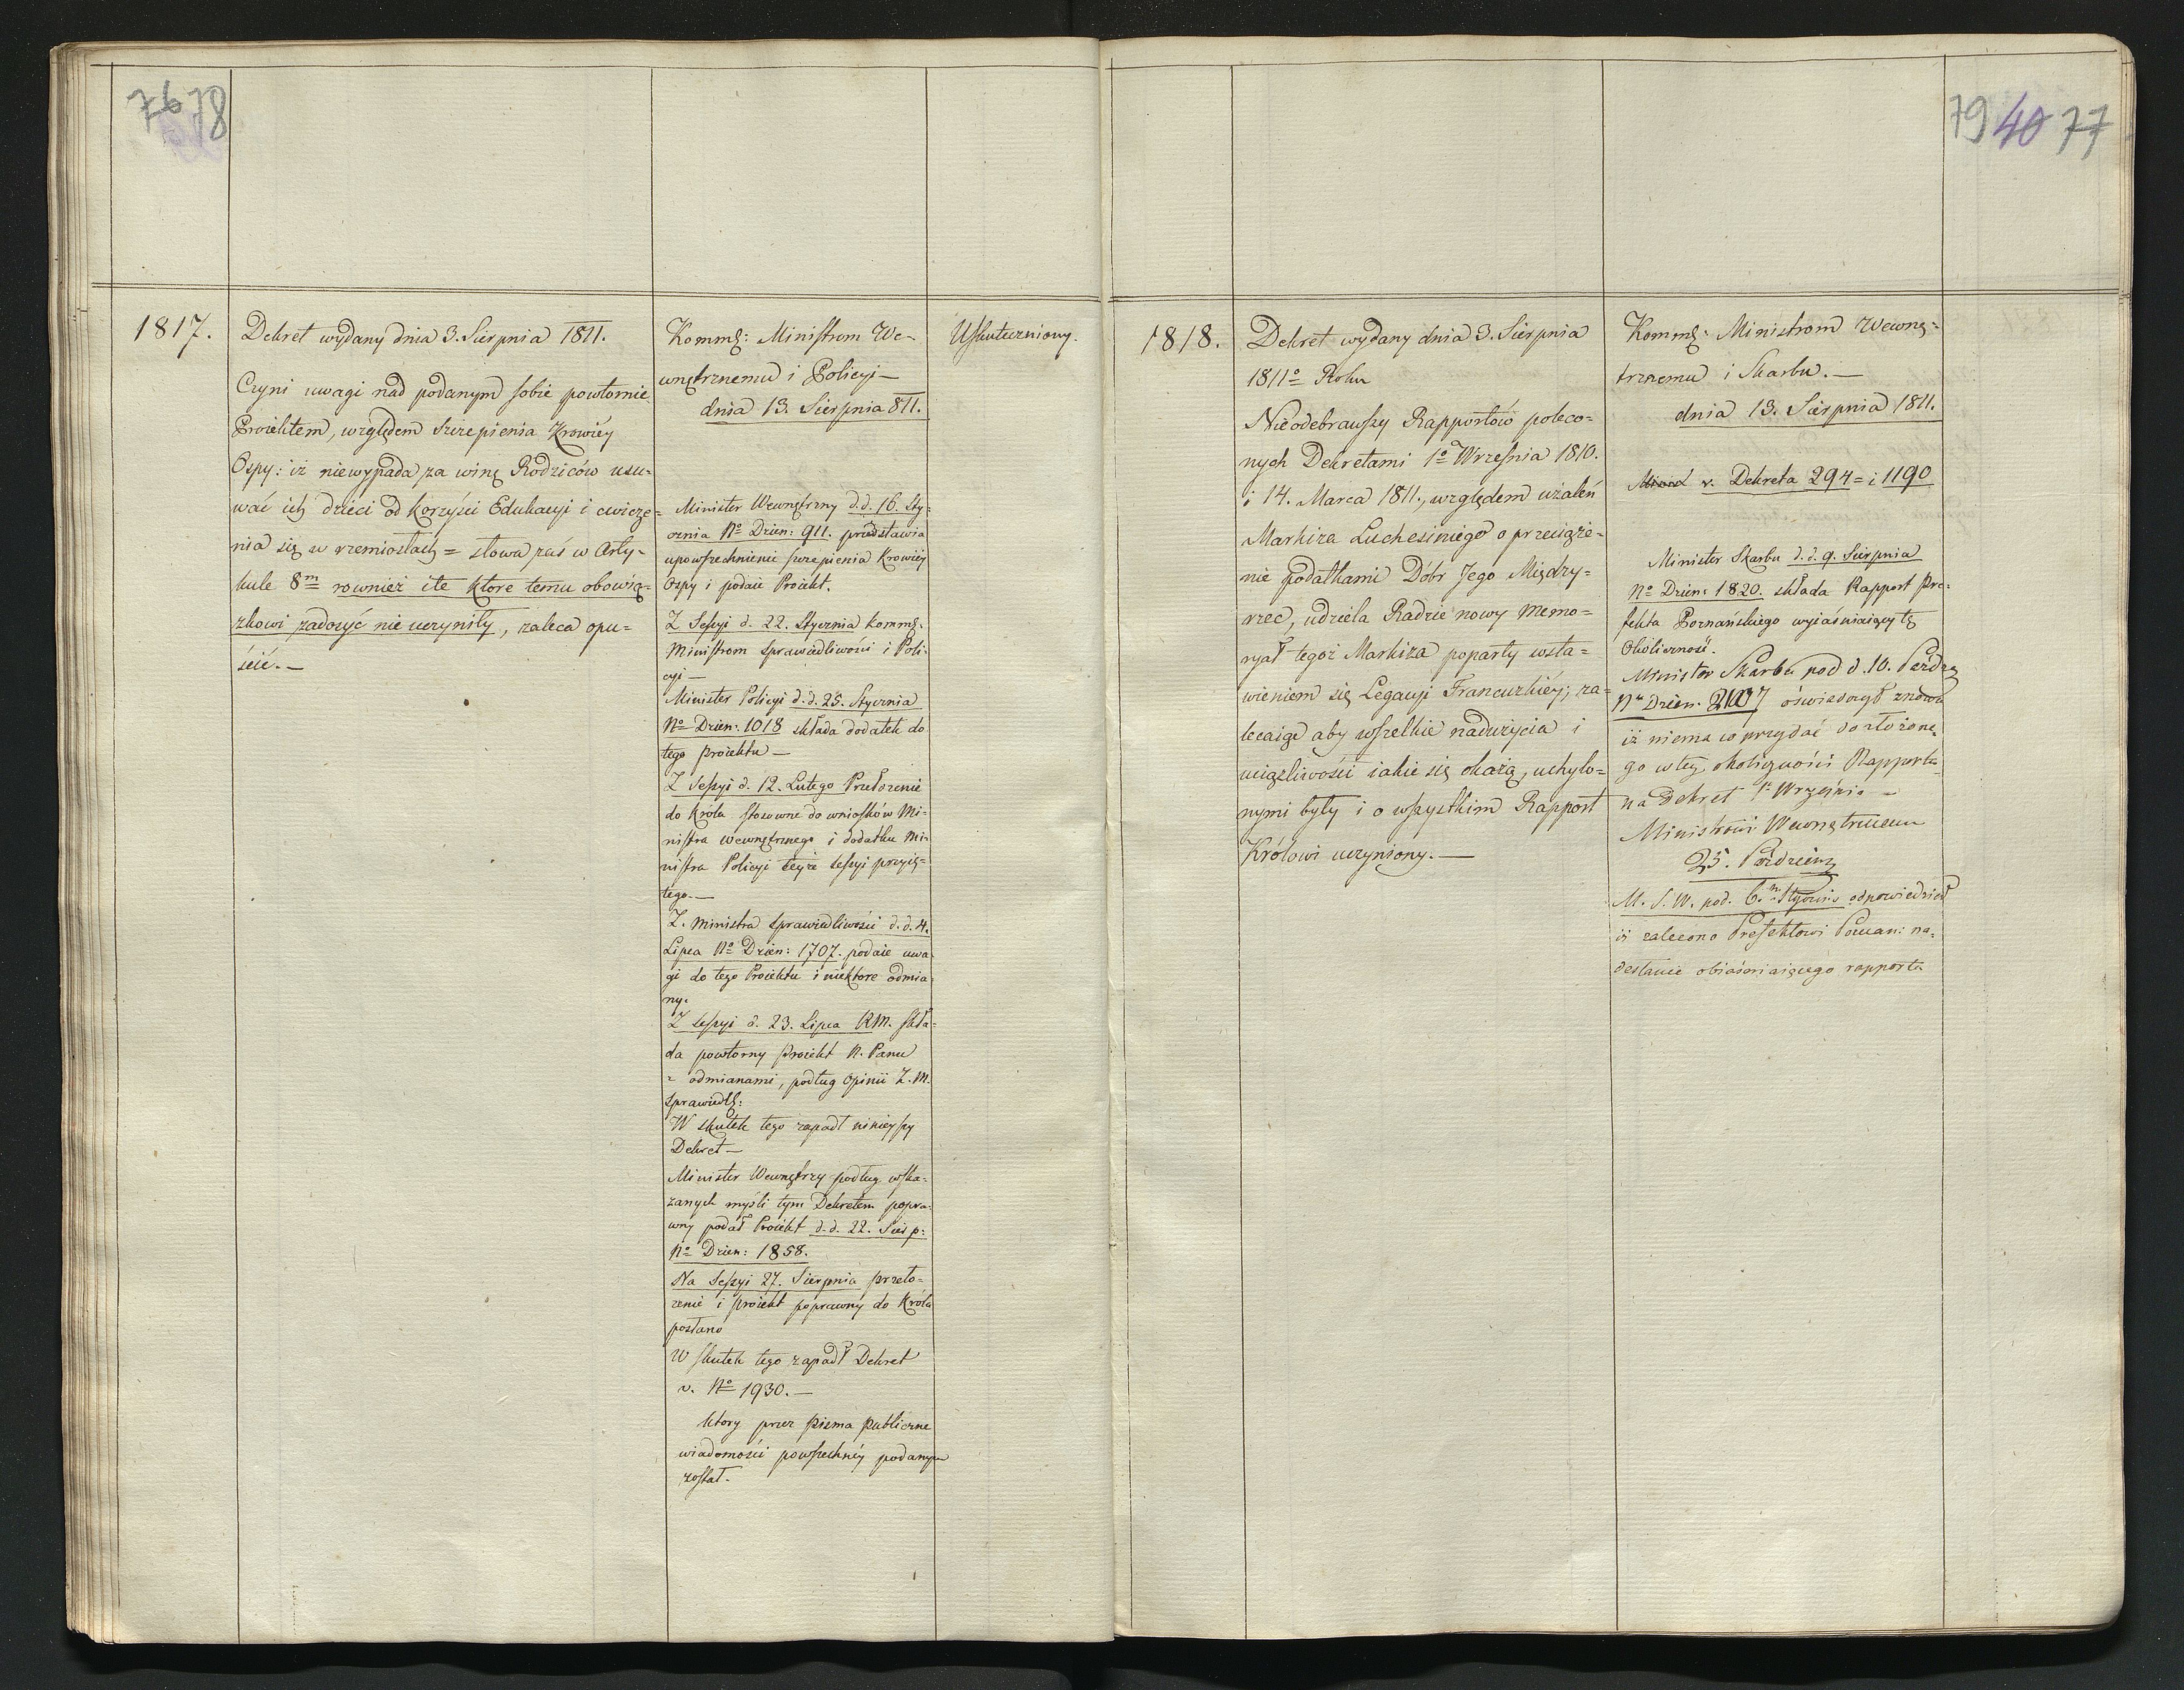 76 78
1817.
Dekret wydany dnia 3. Sierpnia 1811.
Czyni uwagi nad podanym sobie powtornie
Proiektem, względem szczepienia Krowiéy
Ospy: iż niewypada za winę Rodziców usu-
wać ich dzieci od korzyści Edukacyi i cwicze-
nia się w rzemiosłach = słowa zaś w Arty-
kule 8m rownież i te ktore temu obowią-
zkowi zadosyć nie uczyniły, zaleca opu-
ścić.—
Kommę: Ministrom We-
wnętrznemu i Policyi—
dnia 13. Sierpnia 811.
Minister Wewnętrzny d.d. 16. Sty-
cznia No Dzien: 911. przedstawia
upowszechnienie szczepienia Krowiéy
Ospy i podaie Proiekt.
Z Sessyi d. 22. Stycznia kommę.
Ministrom Sprawiedliwości i Poli-
cyi—
Minister Policyi d.d. 25. Stycznia
No Dzien: 1018 składa dodatek do
tego proiektu—
Z Sessyi d. 12. Lutego Przełożenie
do Króla stosowne do wniosków Mi-
nistra Wewnętrznego i dodatku Mi-
nistra Policyi teyże Sessyi przyię-
tego.—
Z. Ministra Sprawiedliwości d.d. 4.
Lipca No Dzien: 1707. podaie uwa-
gi do tego Proiektu i niektore odmia-
ny.
Z Sessyi d. 23. Lipca RM. skła-
da powtorny Proiekt N. Panu
z odmianami, podług Opinii Z. M.
Sprawiedl:
W skutek tego zapadł ninieyszy
Dekret—
Minister Wewnętrzy podług wska-
zanych myśli tym Dekretem popra-
wny podał Proiekt d.d. 22. Sierp:
No Dzien: 1858.
Na Sessyi 27. Sierpnia przeło-
żenie i proiekt poprawny do Króla
posłano
W skutek tego zapadł Dekret
v. No 1930.—
ktory przez pisma publiczne
wiadomości powszechnéy podanym
został.
Uskuteczniony.
79 40 77
1818.
Dekret wydany dnia 3. Sierpnia
1811o Roku
Nieodebrawszy Rapportów poleco-
nych Dekretami 1o Września 1810.
i 14. Marca 1811., względem użaleń
Markiza Luchesiniego o przeciąże-
nie podatkami Dóbr Jego Między-
rzec, udziela Radzie nowy Memo-
ryał tegoż Markiza poparty wsta-
wieniem się Legacyi Francuzkiéy; za-
lecaiąc aby wszelkie nadużycia i
uciążliwości iakie się okażą, uchylo-
nymi były i o wszystkim Rapport
Królowi uczyniony.—
Kommę: Ministrom Wewnę-
trznemu i Skarbu.—
dnia 13. Sierpnia 1811.
v. Dekreta 294 = i 1190
Minister Skarbu d.d. 9. Sierpnia
No Dzien: 1820. składa Rapport Pre-
fekta Poznańskiego wyiaśniaiący tę
Okoliczność.
Minister Skarbu pod d. 10. Paźdz
Nr Dzien. 2107 oświadczył znowu
iż niema co przydać do złożone-
go w téy okoliczności Rapportu
na Dekret 1o Września —
Ministrowi Wewnętrznemu
25. Paździer
M. S. W. pod. 6. Stycznia odpowiedział
iż zalecono Prefektowi Poznan: na-
desłanie obiaśniaiącego rapportu